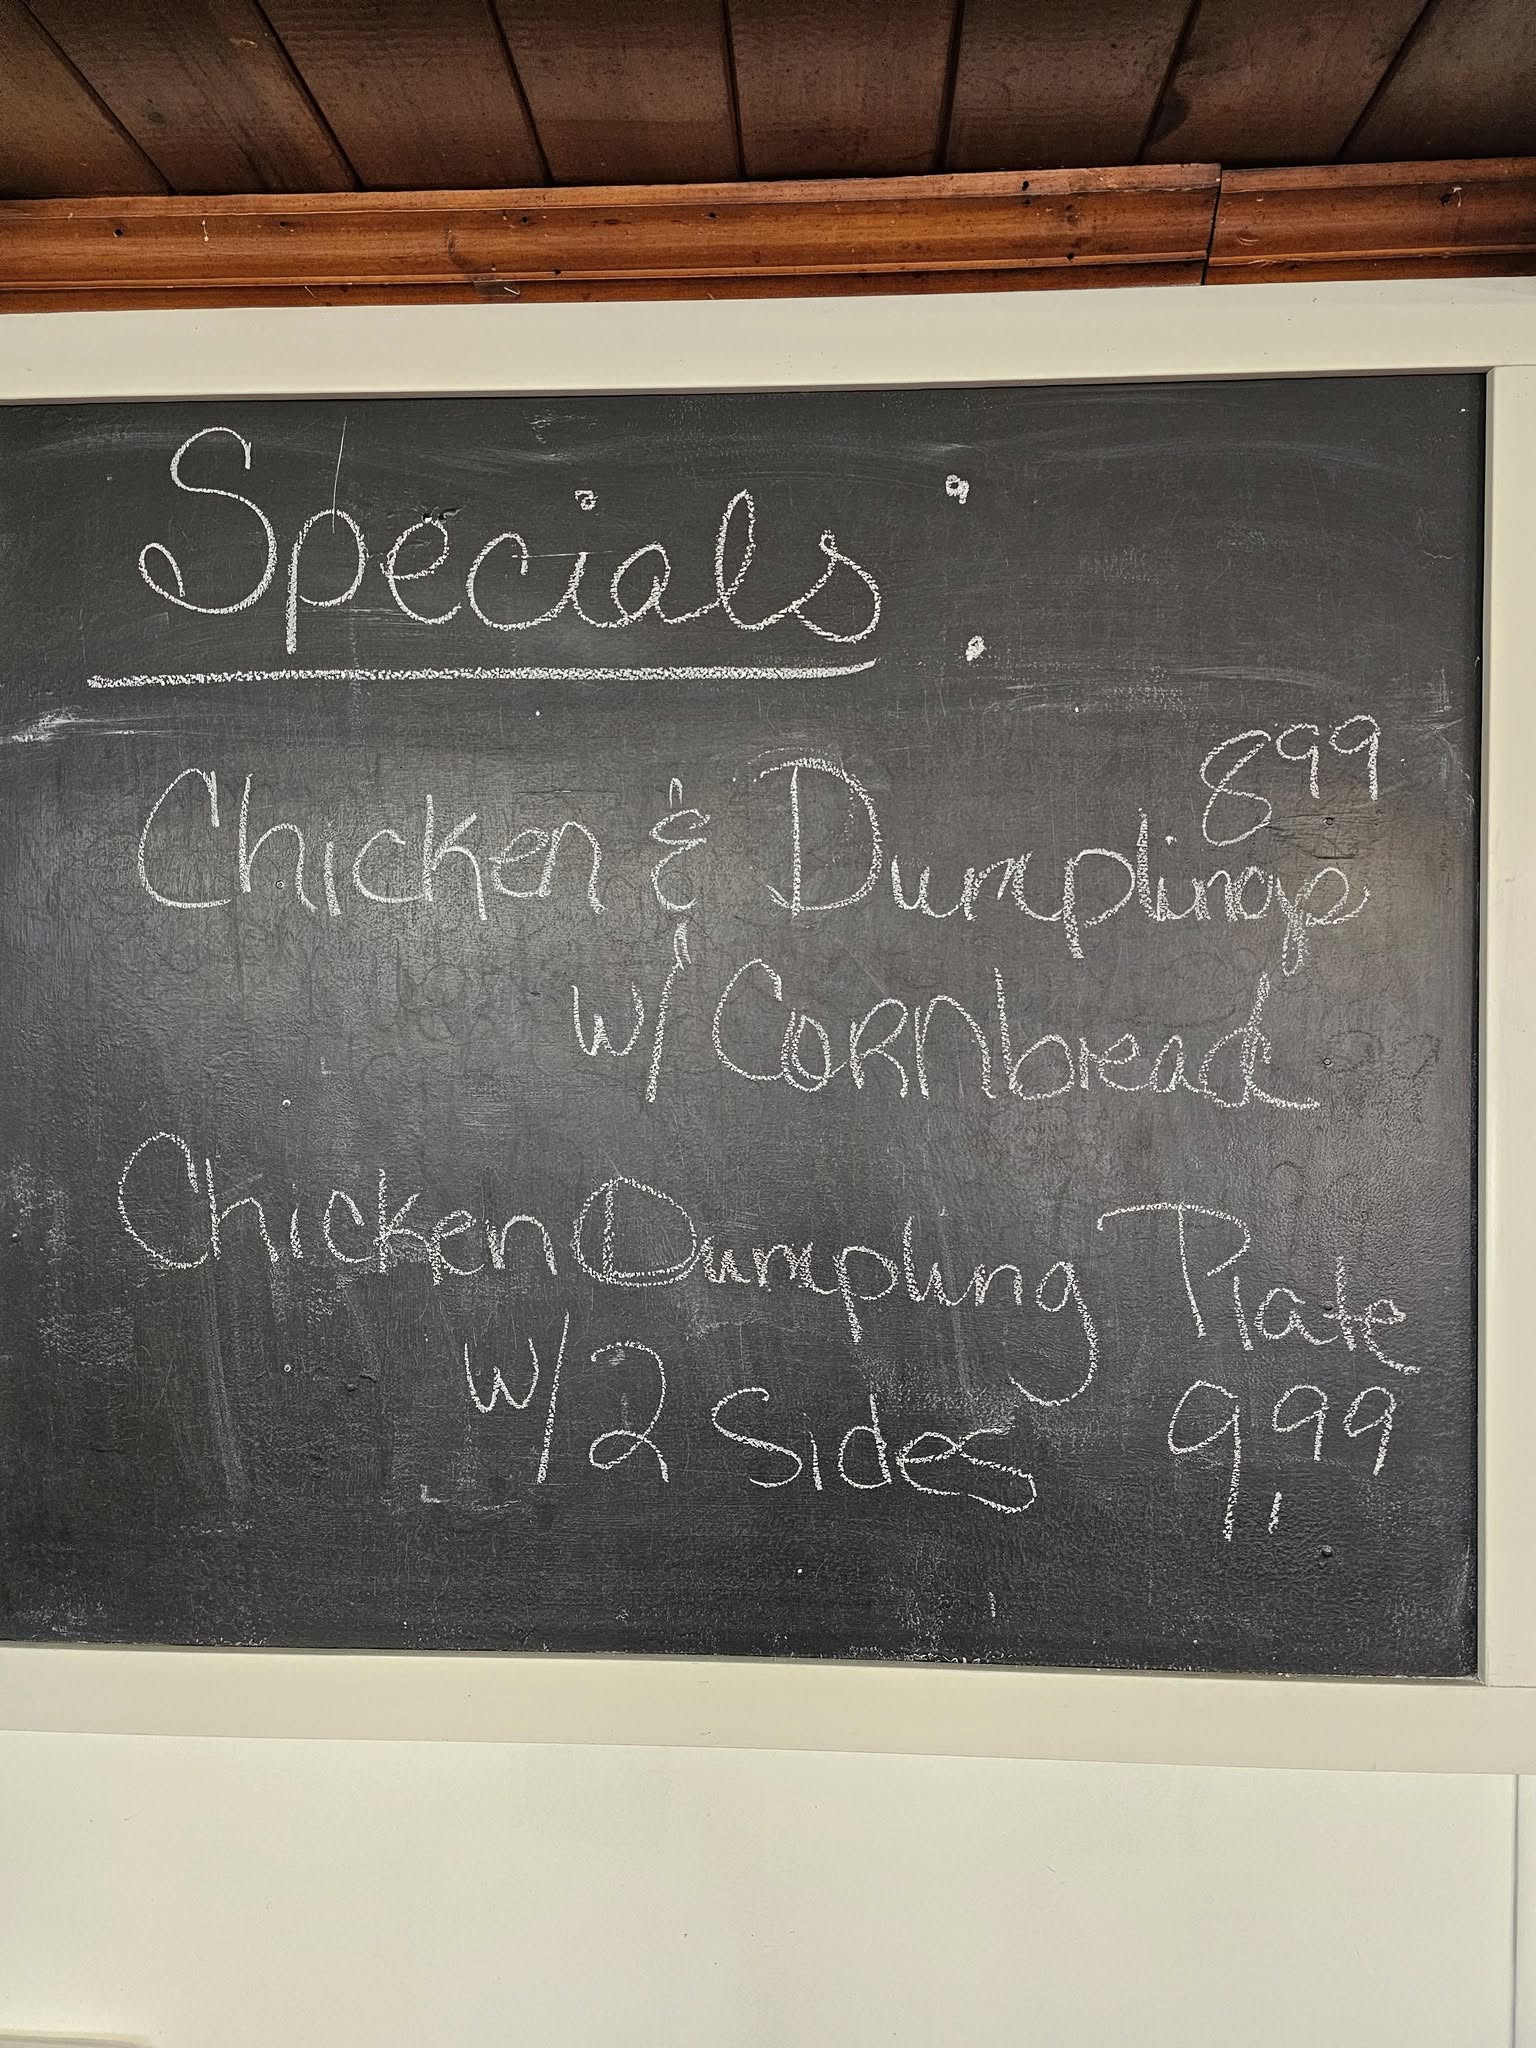 Specials:
8 99
Chicken & Dumplings
w/ Cornbread
Chicken Dumpling Plate
w/ 2 Sides 9,99